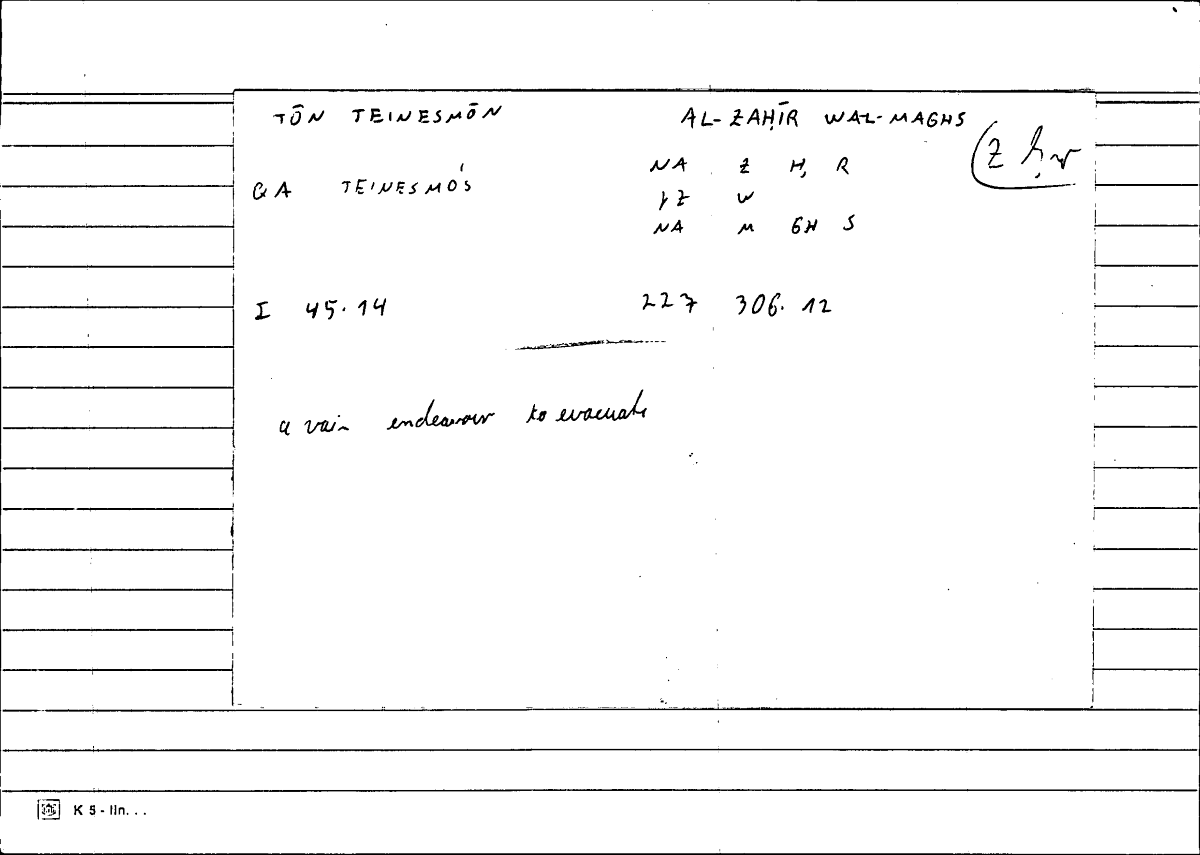 TŌN TEINESMŌN AL-ZAḤĪR WAL-MAGHS
(Z ḥr
NA Z Ḥ R
QA TEINESMÓS
YZ W
NA M GH S
I 45.14 227 306.12
a vain endeavour to evacuate
K 5 - lin...